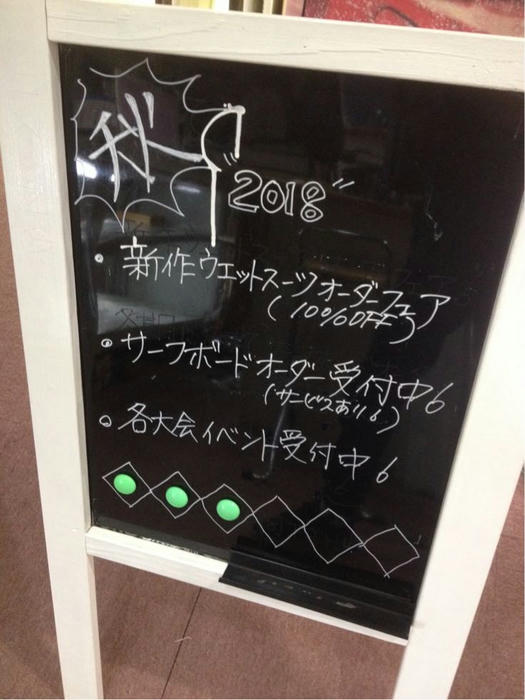 秋
"2018"
• 新作ウエットスーツオーダーフェア
(10%OFF)
• サーフボードオーダー受付中6
(サービスあり6)
• 各大会イベント受付中6